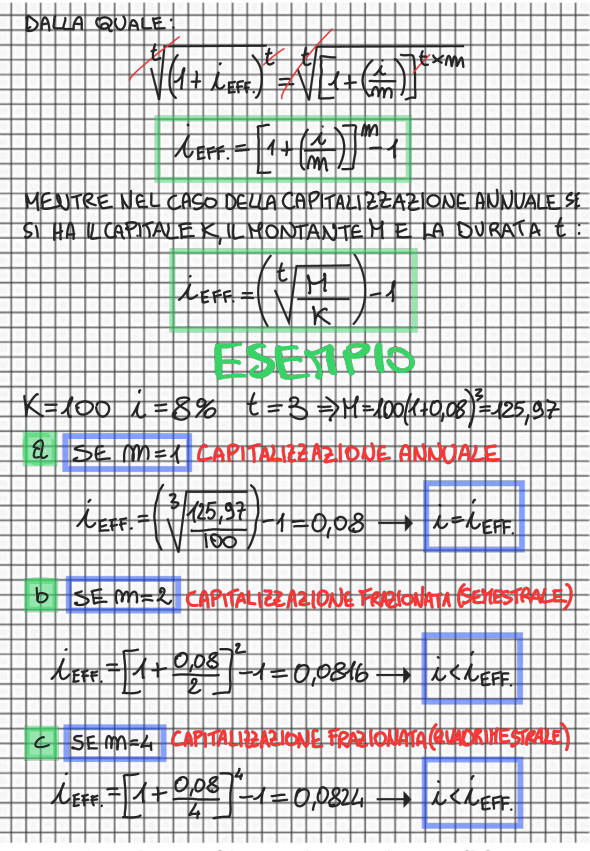 DALLA QUALE:
ᵗ√(1+i EFF.)ᵗ = ᵗ√[1+(i/m)]ᵗˣᵐ
i EFF. = [1+(i/m)]ᵐ-1
MENTRE NEL CASO DELLA CAPITALIZZAZIONE ANNUALE SE
SI HA IL CAPITALE K, IL MONTANTE M E LA DURATA t:
i EFF. = (ᵗ√M/K)-1
ESEMPIO
K=100 i=8% t=3 ⇒M=100(1+0,08)³=125,97
a SE m=1 CAPITALIZZAZIONE ANNUALE
i EFF. = (³√125,97/100)-1=0,08 → i=i EFF.
b SE m=2 CAPITALIZZAZIONE FRAZIONATA (SEMESTRALE)
i EFF. = [1+0,08/2]²-1=0,0816 → i<i EFF.
c SE m=4 CAPITALIZZAZIONE FRAZIONATA (QUADRIMESTRALE)
i EFF. = [1+0,08/4]⁴-1=0,0824 → i<i EFF.